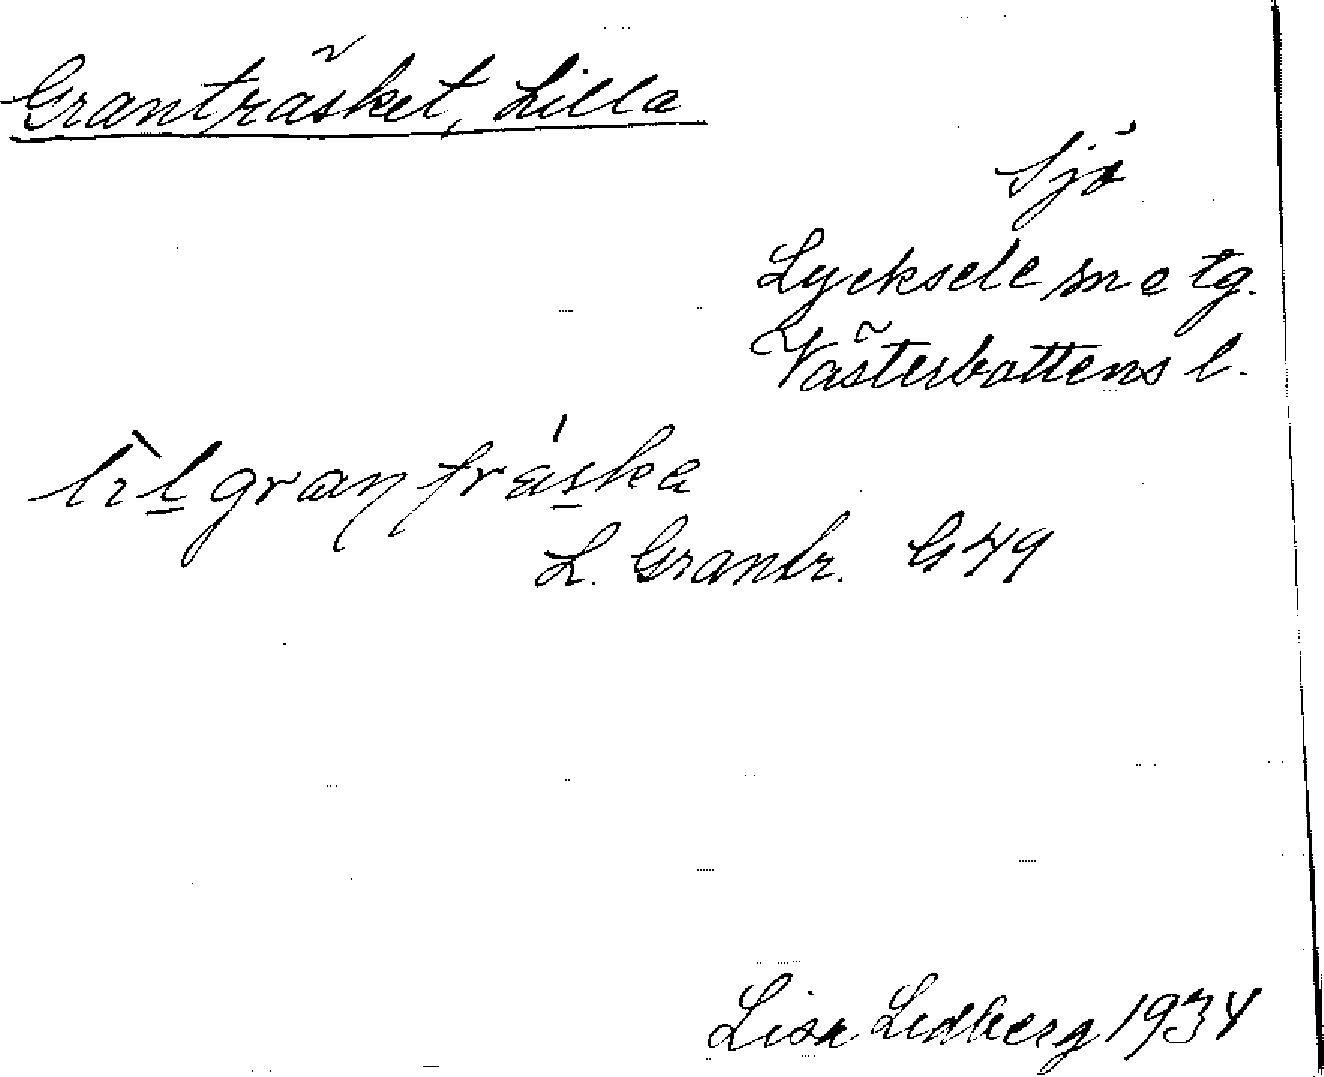 Granträsket, Lilla
Sjö
Lycksele sn o tg.
Västerbottens l.
lìl granträ́ska
L. Grantr. G 49
Lisa Lidberg 1934